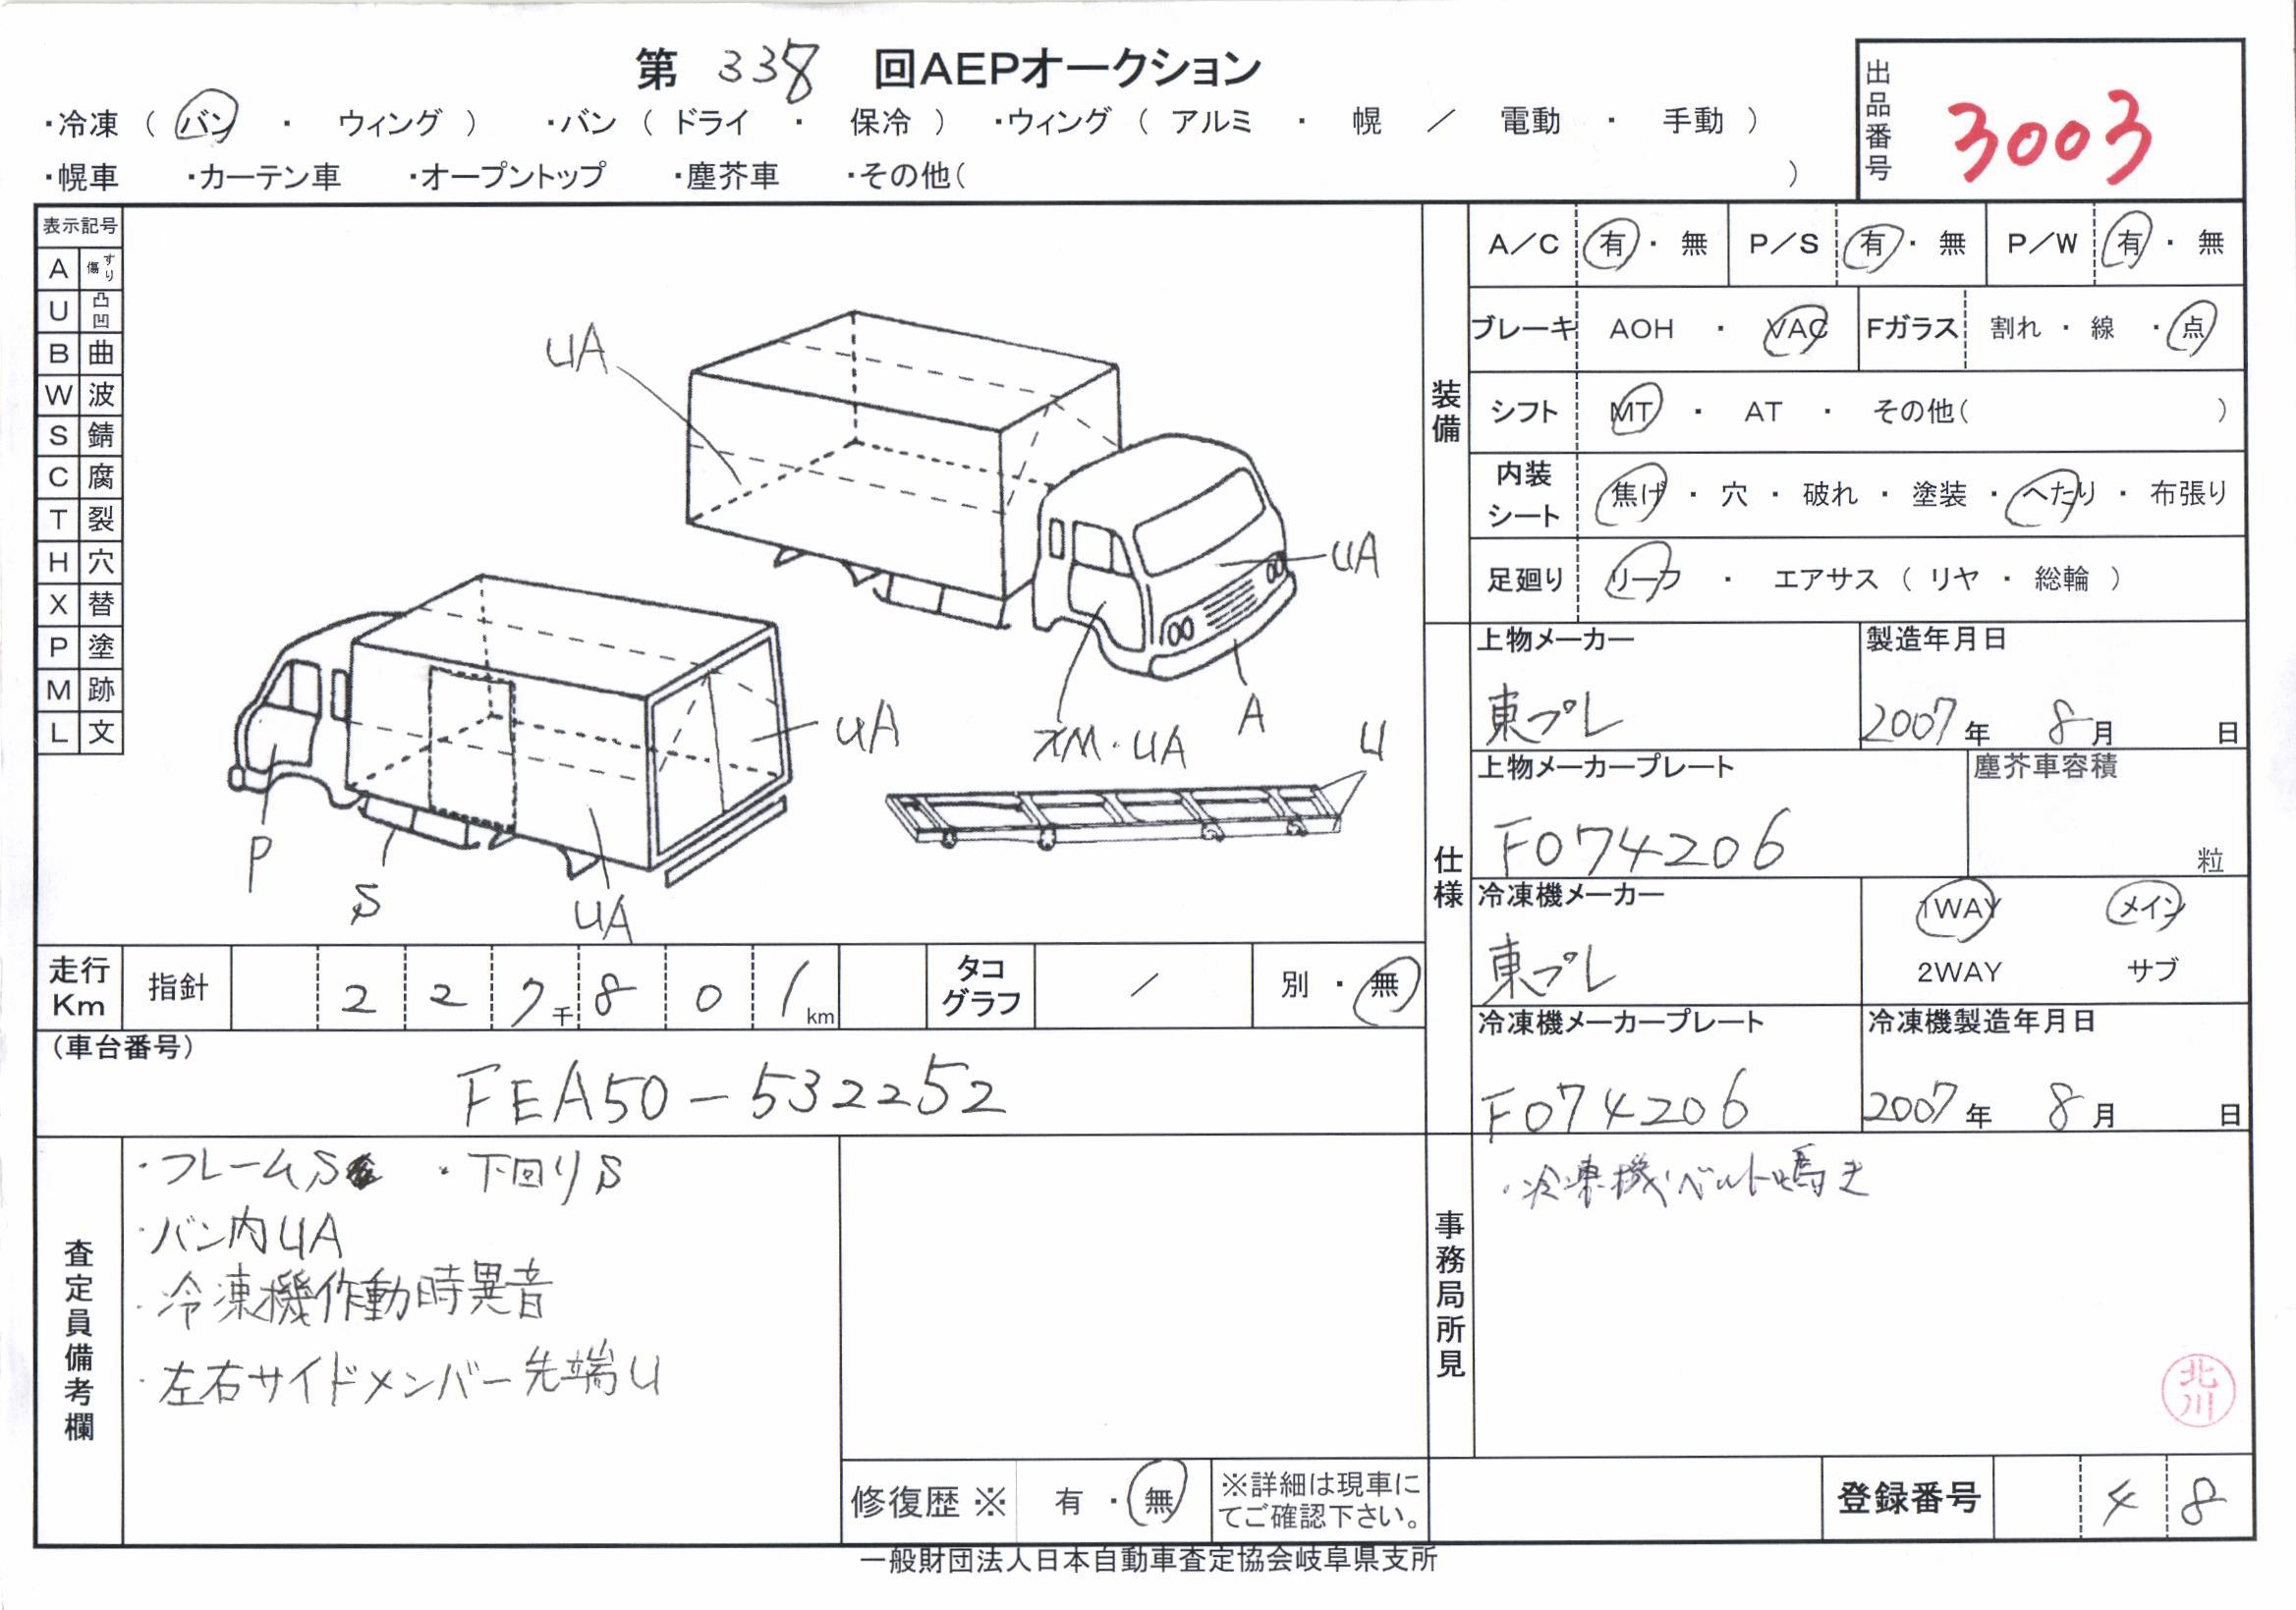 第 338 回AEPオークション
・冷凍（ バン ・ ウィング ） ・バン（ ドライ ・ 保冷 ） ・ウィング（ アルミ ・ 幌 ／ 電動 ・ 手動 ）
・幌車 ・カーテン車 ・オープントップ ・塵芥車 ・その他( )
出品番号 3003
表示記号
A すり傷
U 凸凹
B 曲
W 波
S 錆
C 腐
T 裂
H 穴
X 替
P 塗
M 跡
L 文
UA
UA
A
M・UA
U
UA
P
S
UA
装備
A／C 有 ・ 無 P／S 有 ・ 無 P／W 有 ・ 無
ブレーキ AOH ・ VAC Fガラス 割れ ・ 線 ・ 点
シフト MT ・ AT ・ その他( )
内装シート 焦げ ・ 穴 ・ 破れ ・ 塗装 ・ へたり ・ 布張り
足廻り リーフ ・ エアサス（ リヤ ・ 総輪 ）
仕様
上物メーカー 製造年月日
東プレ 2007 年 8 月 日
上物メーカープレート 塵芥車容積
F074206 粒
冷凍機メーカー 1WAY メイン
東プレ 2WAY サブ
冷凍機メーカープレート 冷凍機製造年月日
F074206 2007 年 8 月 日
走行Km 指針 2 2 7千 8 0 1 km タコグラフ ／ 別 ・ 無
（車台番号）
FEA50-532252
査定員備考欄
・フレームS ・下回りS
・バン内UA
・冷凍機作動時異音
・左右サイドメンバー先端U
修復歴 ※ 有 ・ 無 ※詳細は現車にてご確認下さい。
事務局所見
・冷凍機ベルト鳴き
北川
登録番号 4 8
一般財団法人日本自動車査定協会岐阜県支所